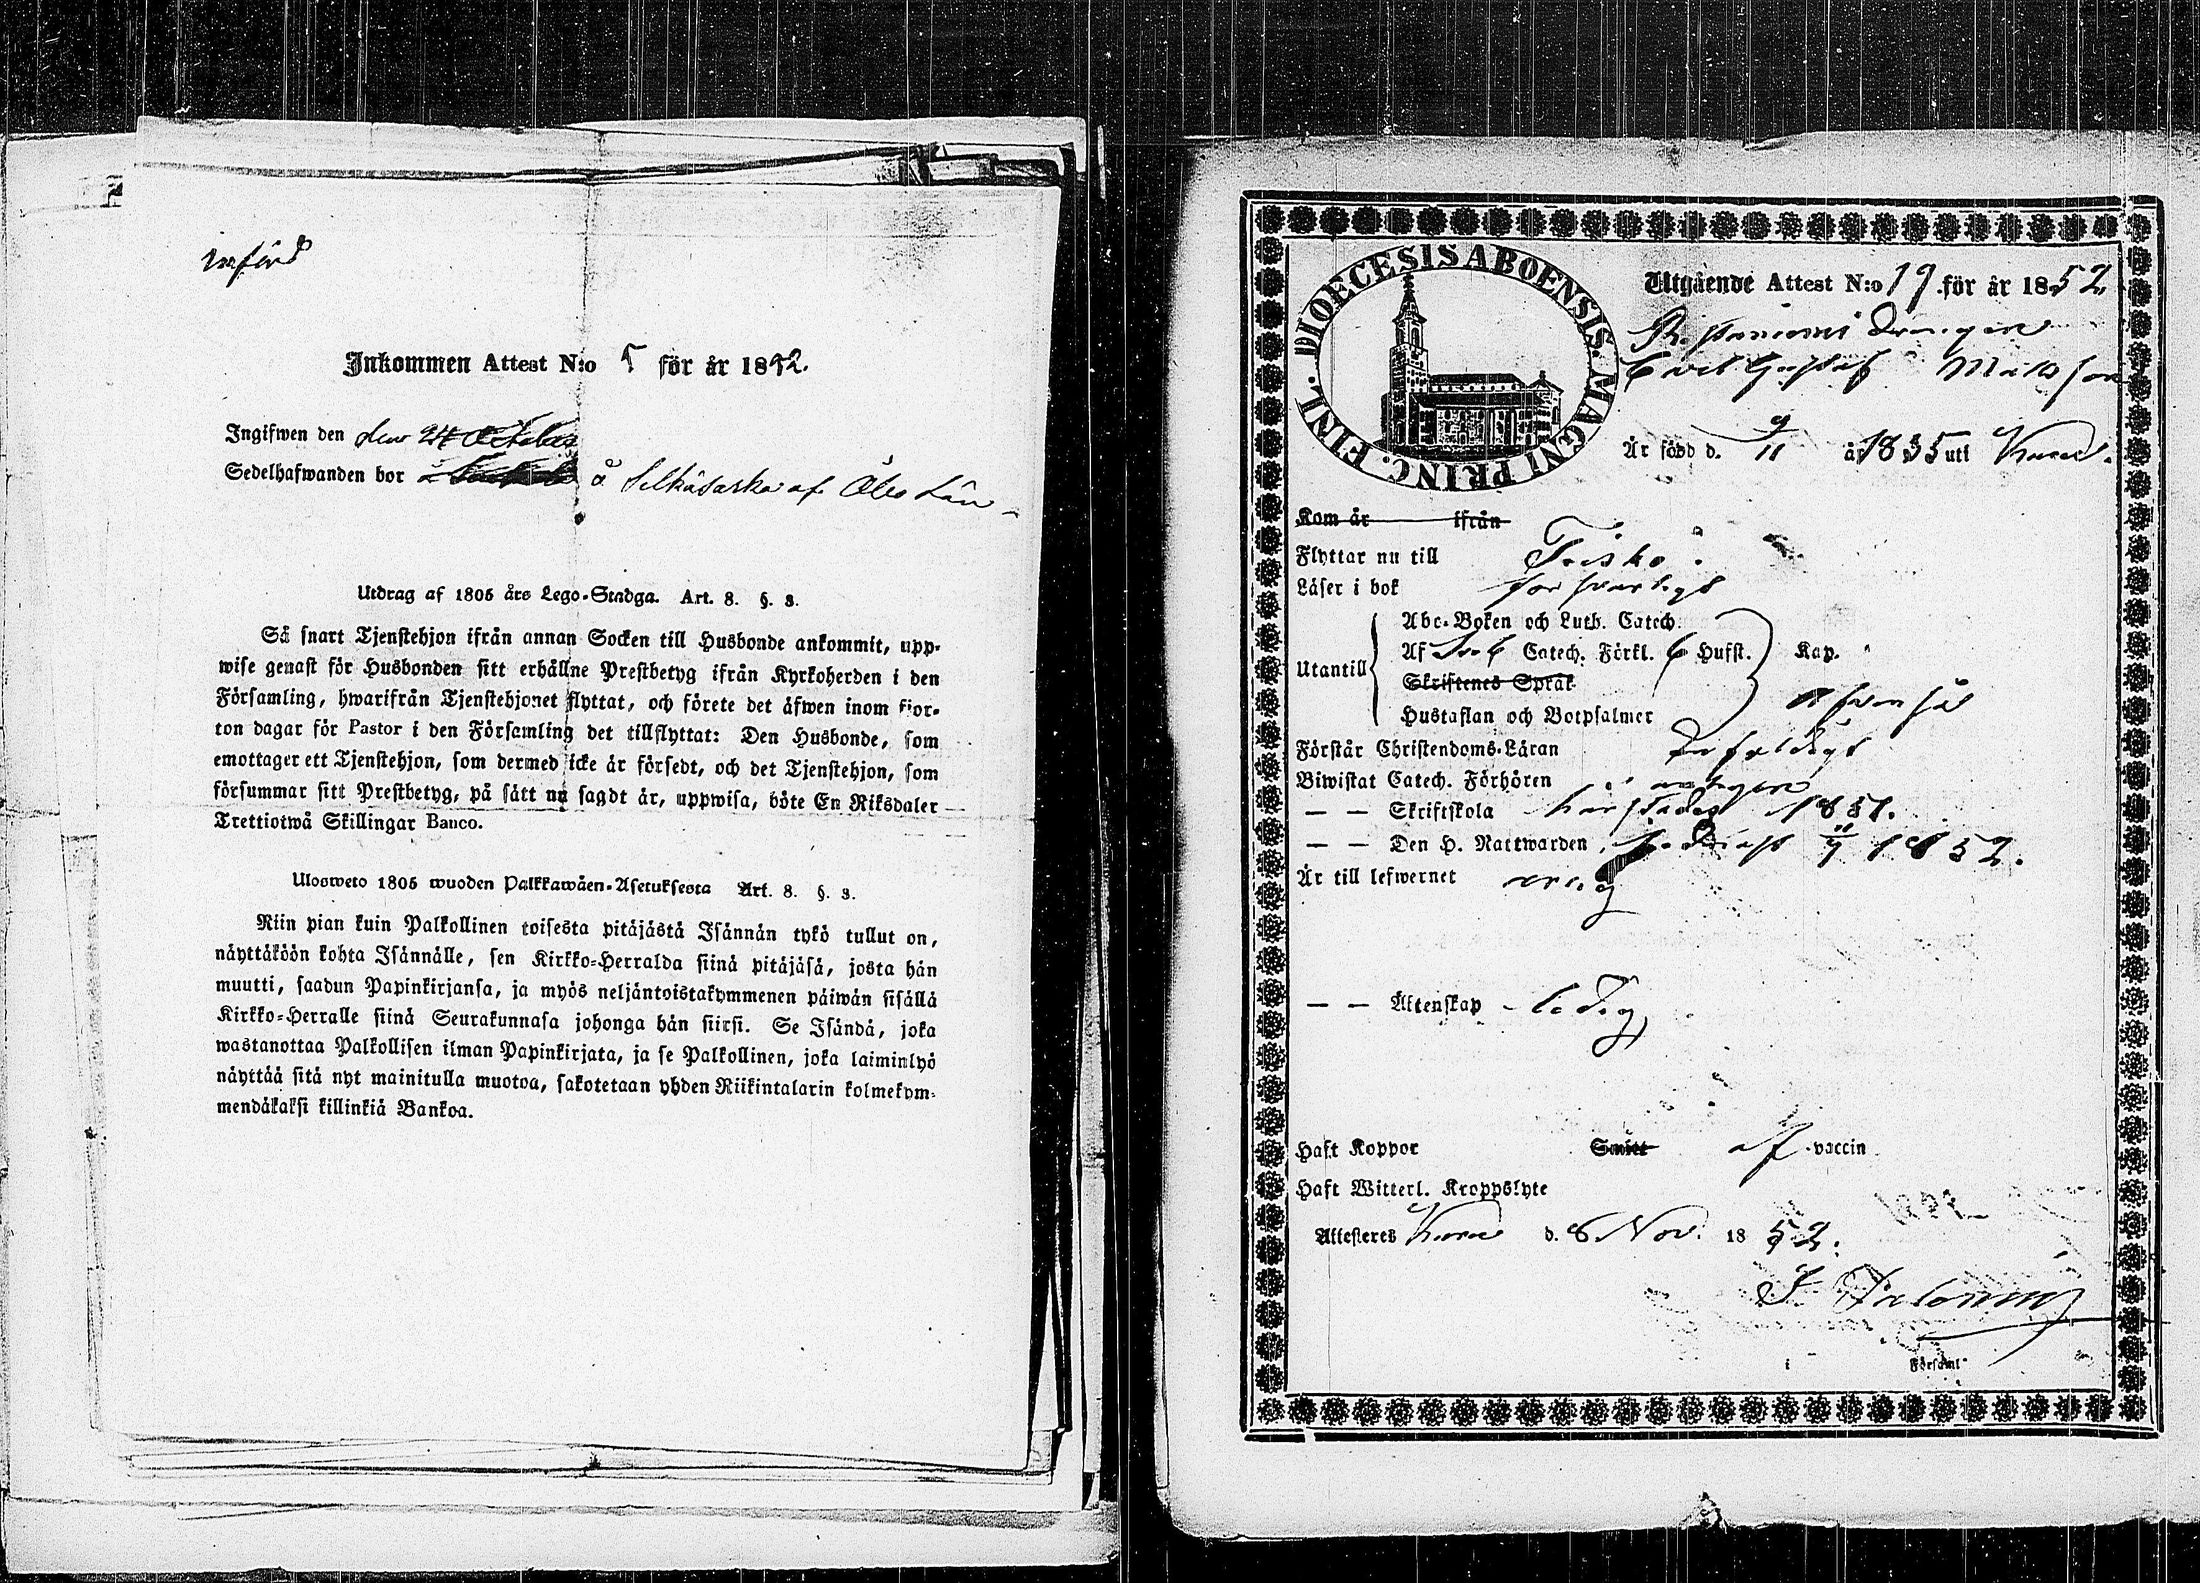 införd
Inkommen Attest N:o 5 för år 1852.
Ingifwen den den 24 October
Sedelhafwanden bor å Selkäsarka af Åbo Län
Utdrag af 1805 års Lego-Stadga. Art. 8. §. 3.
Så snart Tjenstehjon ifrån annan Socken till Husbonde ankommit, upp-
wise genast för Husbonden sitt erhållne Prestbetyg ifrån Kyrkoherden i den
Församling, hwarifrån Tjenstehjonet flyttat, och förete det äfwen inom fjor-
ton dagar för Pastor i den Församling det tillflyttat: Den Husbonde, som
emottager ett Tjenstehjon, som dermed icke är försedt, och det Tjenstehjon, som
försummar sitt Prestbetyg, på sätt nu sagdt är, uppwisa, böte En Riksdaler
Trettiotwå Skillingar Banco.
Ulosweto 1805 wuoden Palkkawäen-Asetuksesta Art. 8. §. 3.
Niin pian kuin Palkollinen toisesta pitäjästä Isännän tykö tullut on,
näyttäköön kohta Isännälle, sen Kirkko-Herralda siinä pitäjäsä, josta hän
muutti, saadun Papinkirjansa, ja myös neljäntoistakymmenen päiwän sisällä
Kirkko-Herralle siinä Seurakunnasa johonga hän siirsi. Se Isändä, joka
wastanottaa Palkollisen ilman Papinkirjata, ja se Palkollinen, joka laiminlyö
näyttää sitä nyt mainitulla muotoa, sakotetaan yhden Riikintalarin kolmekym-
mendäkaksi killinkiä Bankoa.
DIOECESIS ABOENSIS. MAGNI PRINC. FINL.
Utgående Attest N:o 19 för år 1852
Drengen
Carl Gustaf Matts son
Är född d. 9/11 år 1835 uti
Kom år ifrån
Flyttar nu till Kisko.
Läser i bok försvarligt
Abc-Boken och Luth. Catech.
Utantill Af Sveb Catech. Förkl. 6 Hufst. Kap.
Skriftenes Språk
Hustaflan och Botpsalmer
Förstår Christendoms-Läran
Biwistat Catech. Förhören
— — Skriftskola härstädes 1851.
— — Den H. Nattwarden 1852.
Är till lefwernet ärlig
— — Äktenskap ledig
Haft Koppor Smitt af vaccin
Haft Witterl. Kroppslyte
Attesteres d. 6 Nov. 1852.
i Församl.